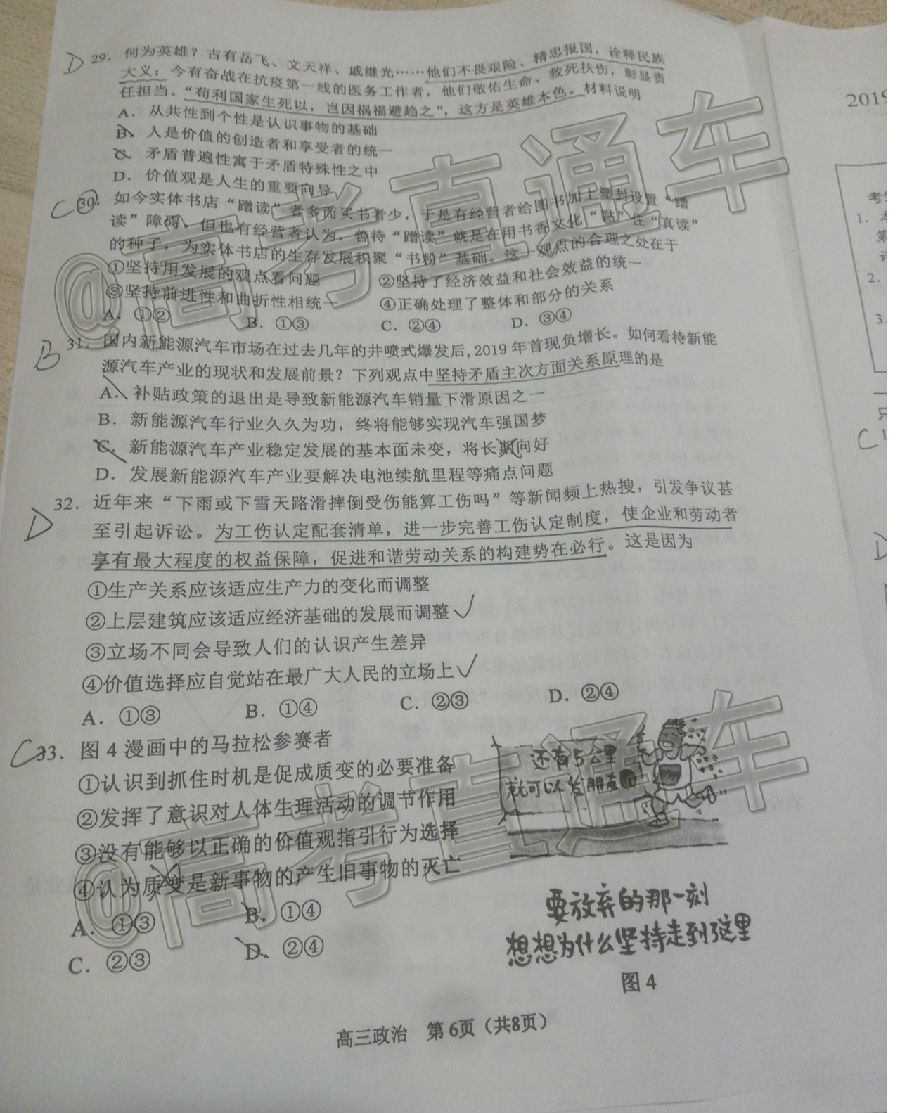 D 29. 何为英雄？古有岳飞、文天祥、戚继光……他们不畏艰险、精忠报国，诠释民族
大义；今有奋战在抗疫第一线的医务工作者，他们敬佑生命、救死扶伤，彰显责
任担当。“苟利国家生死以，岂因祸福避趋之”，这方是英雄本色。材料说明
A. 从共性到个性是认识事物的基础
B. 人是价值的创造者和享受者的统一
C. 矛盾普遍性寓于矛盾特殊性之中
D. 价值观是人生的重要向导
C 30. 如今实体书店“蹭读”者多而买书者少，于是有经营者给图书加上塑封设置“蹭
读”障碍，但也有经营者认为，善待“蹭读”就是在用书香文化“黏”住“真读”
的种子，为实体书店的生存发展积聚“书粉”基础。这一观点的合理之处在于
①坚持用发展的观点看问题 ②坚持了经济效益和社会效益的统一
③坚持前进性和曲折性相统一 ④正确处理了整体和部分的关系
A. ①② B. ①③ C. ②④ D. ③④
B 31. 国内新能源汽车市场在过去几年的井喷式爆发后，2019年首现负增长。如何看待新能
源汽车产业的现状和发展前景？下列观点中坚持矛盾主次方面关系原理的是
A. 补贴政策的退出是导致新能源汽车销量下滑原因之一
B. 新能源汽车行业久久为功，终将能够实现汽车强国梦
C. 新能源汽车产业稳定发展的基本面未变，将长期向好
D. 发展新能源汽车产业要解决电池续航里程等痛点问题
D 32. 近年来“下雨或下雪天路滑摔倒受伤能算工伤吗”等新闻频上热搜，引发争议甚
至引起诉讼。为工伤认定配套清单，进一步完善工伤认定制度，使企业和劳动者
享有最大程度的权益保障，促进和谐劳动关系的构建势在必行。这是因为
①生产关系应该适应生产力的变化而调整
②上层建筑应该适应经济基础的发展而调整
③立场不同会导致人们的认识产生差异
④价值选择应自觉站在最广大人民的立场上
A. ①③ B. ①④ C. ②③ D. ②④
C 33. 图4漫画中的马拉松参赛者
①认识到抓住时机是促成质变的必要准备
②发挥了意识对人体生理活动的调节作用
③没有能够以正确的价值观指引行为选择
④认为质变是新事物的产生旧事物的灭亡
A. ①③ B. ①④
C. ②③ D. ②④
还有5公里
就可以发朋友圈
要放弃的那一刻
想想为什么坚持走到这里
图4
高三政治 第6页（共8页）
@高考直通车
@高考直通车
2019
考
1.
2.
3.